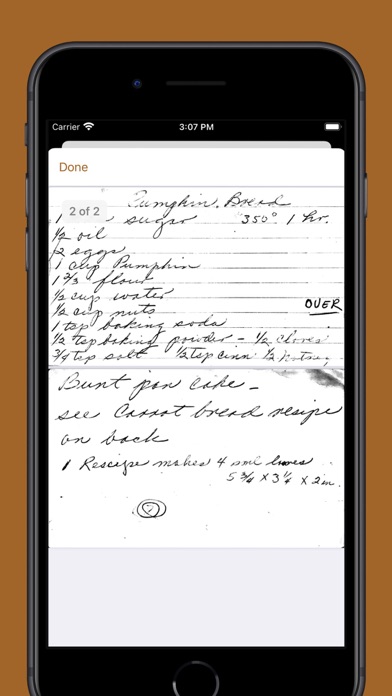 Carrier 3:07 PM
Done
2 of 2
Pumpkin Bread
1 sugar 350° 1 hr.
1/2 oil
2 eggs
1 cup Pumpkin
1 2/3 flour
1/2 cup water
1/2 cup nuts
OVER
1 tsp baking soda
1/2 tsp baking powder - 1/2 cloves
3/4 tsp salt 1/2 tsp cinn 1/2 nutmeg
Bunt pan cake -
see Carrot bread resipe
on back
1 Rescipe makes 4 sml
5 3/4 X 3 1/4 X 2 in.